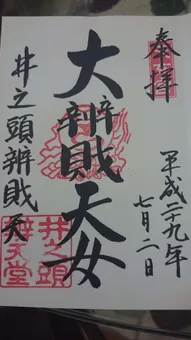 奉拝
平成二九年
七月二日
大辨財天女
井之頭辨財天
井之頭
辨天堂